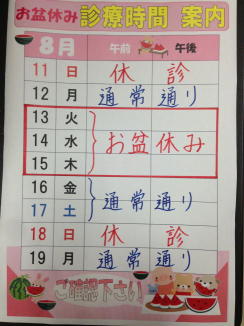 お盆休み 診療時間 案内
8月 午前 午後
11 日 休 診
12 月 通常 通り
13 火
14 水 お盆休み
15 木
16 金
17 土 通常 通り
18 日 休 診
19 月 通常 通り
ご確認下さい